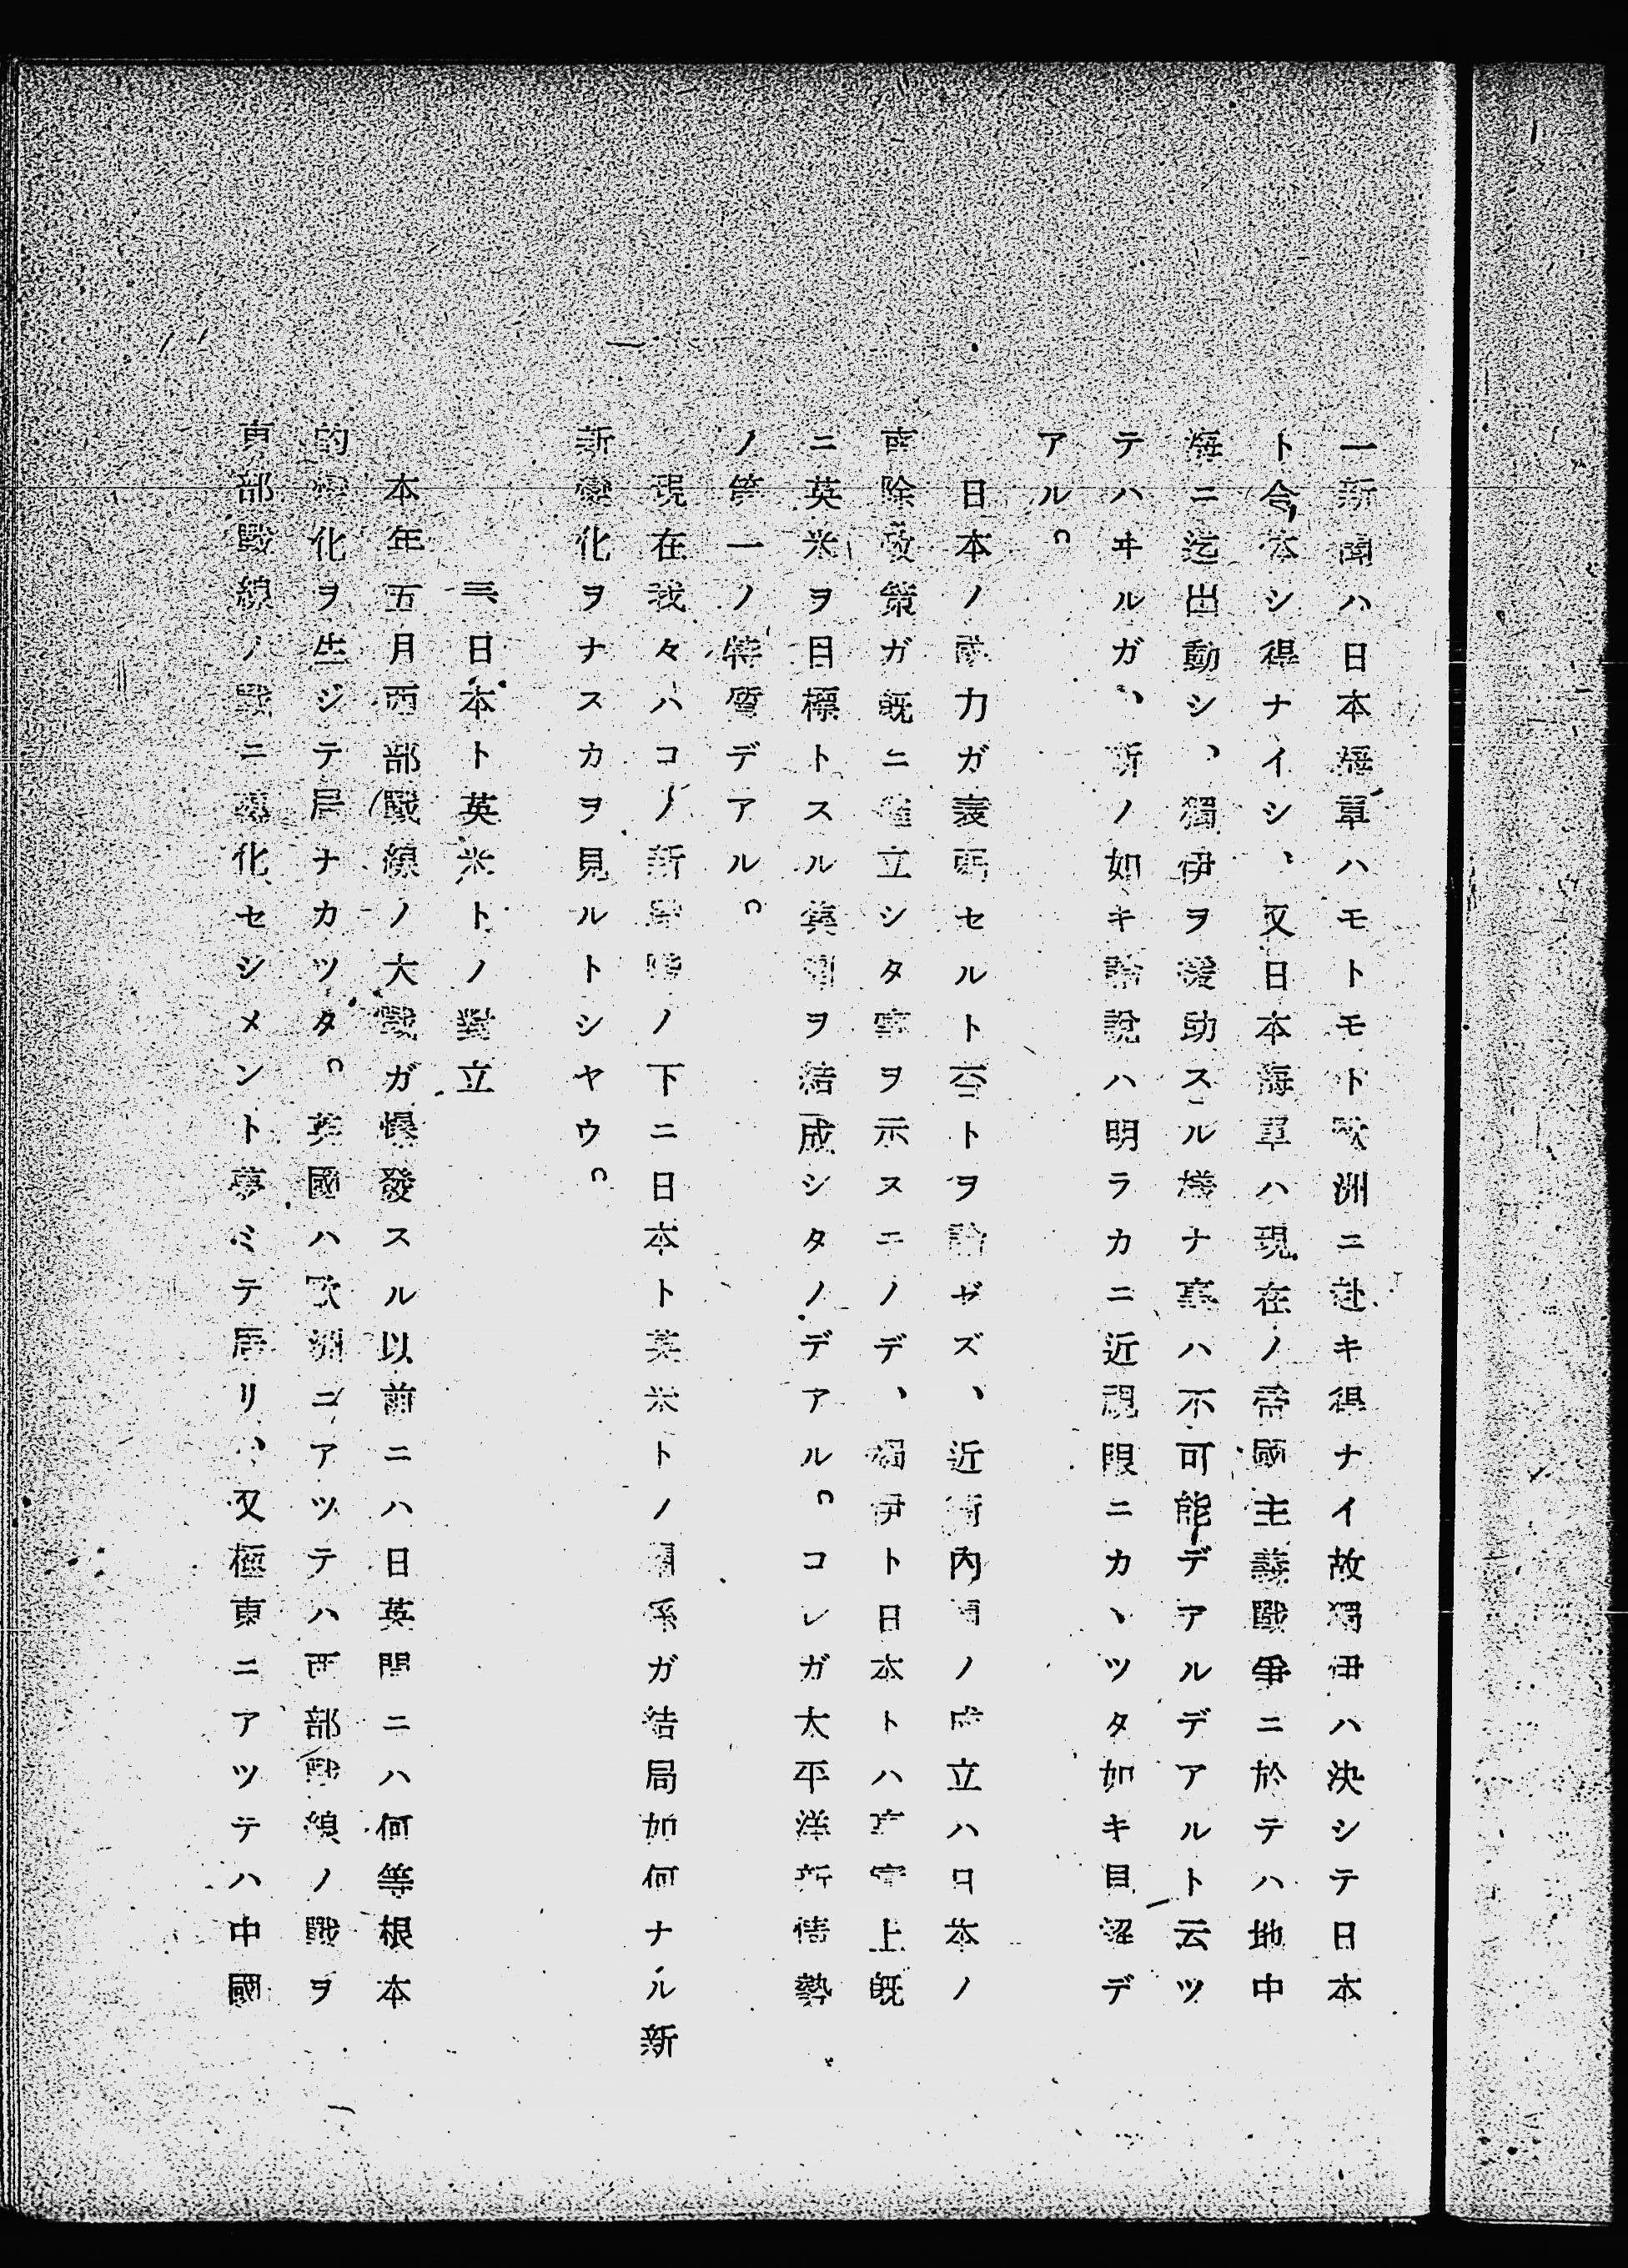 一新聞ハ日本海軍ハモトモト歐洲ニ赴キ得ナイ故獨伊ハ決シテ日本
ト合体シ得ナイシ、又日本海軍ハ現在ノ帝國主義戰爭ニ於テハ地中
海ニ迄出動シ、獨伊ヲ援助スル樣ナ事ハ不可能デアルデアルト云ツ
テハヰルガ、斯ノ如キ論說ハ明ラカニ近視眼ニカヽツタ如キ目溜デ
アル。
日本ノ國力ガ衰弱セルト否トヲ論ゼズ、近衞內閣ノ成立ハ日本ノ
南除政策ガ既ニ確立シタ事ヲ示スニノデ、獨伊ト日本トハ事實上既
ニ英米ヲ目標トスル集團ヲ結成シタノデアル。コレガ太平洋新情勢
ノ第一ノ特質デアル。
現在我々ハコノ新局勢ノ下ニ日本ト英米トノ關係ガ結局如何ナル新
新變化ヲナスカヲ見ルトシヤウ。
三、日本ト英米トノ對立
本年五月西部戰線ノ大戰ガ爆發スル以前ニハ日英間ニハ何等根本
的變化ヲ生ジテ居ナカツタ。英國ハ歐洲ニアツテハ西部戰線ノ戰ヲ
東部戰線ノ戰ニ惡化セシメント夢ミテ居リ、又極東ニアツテハ中國